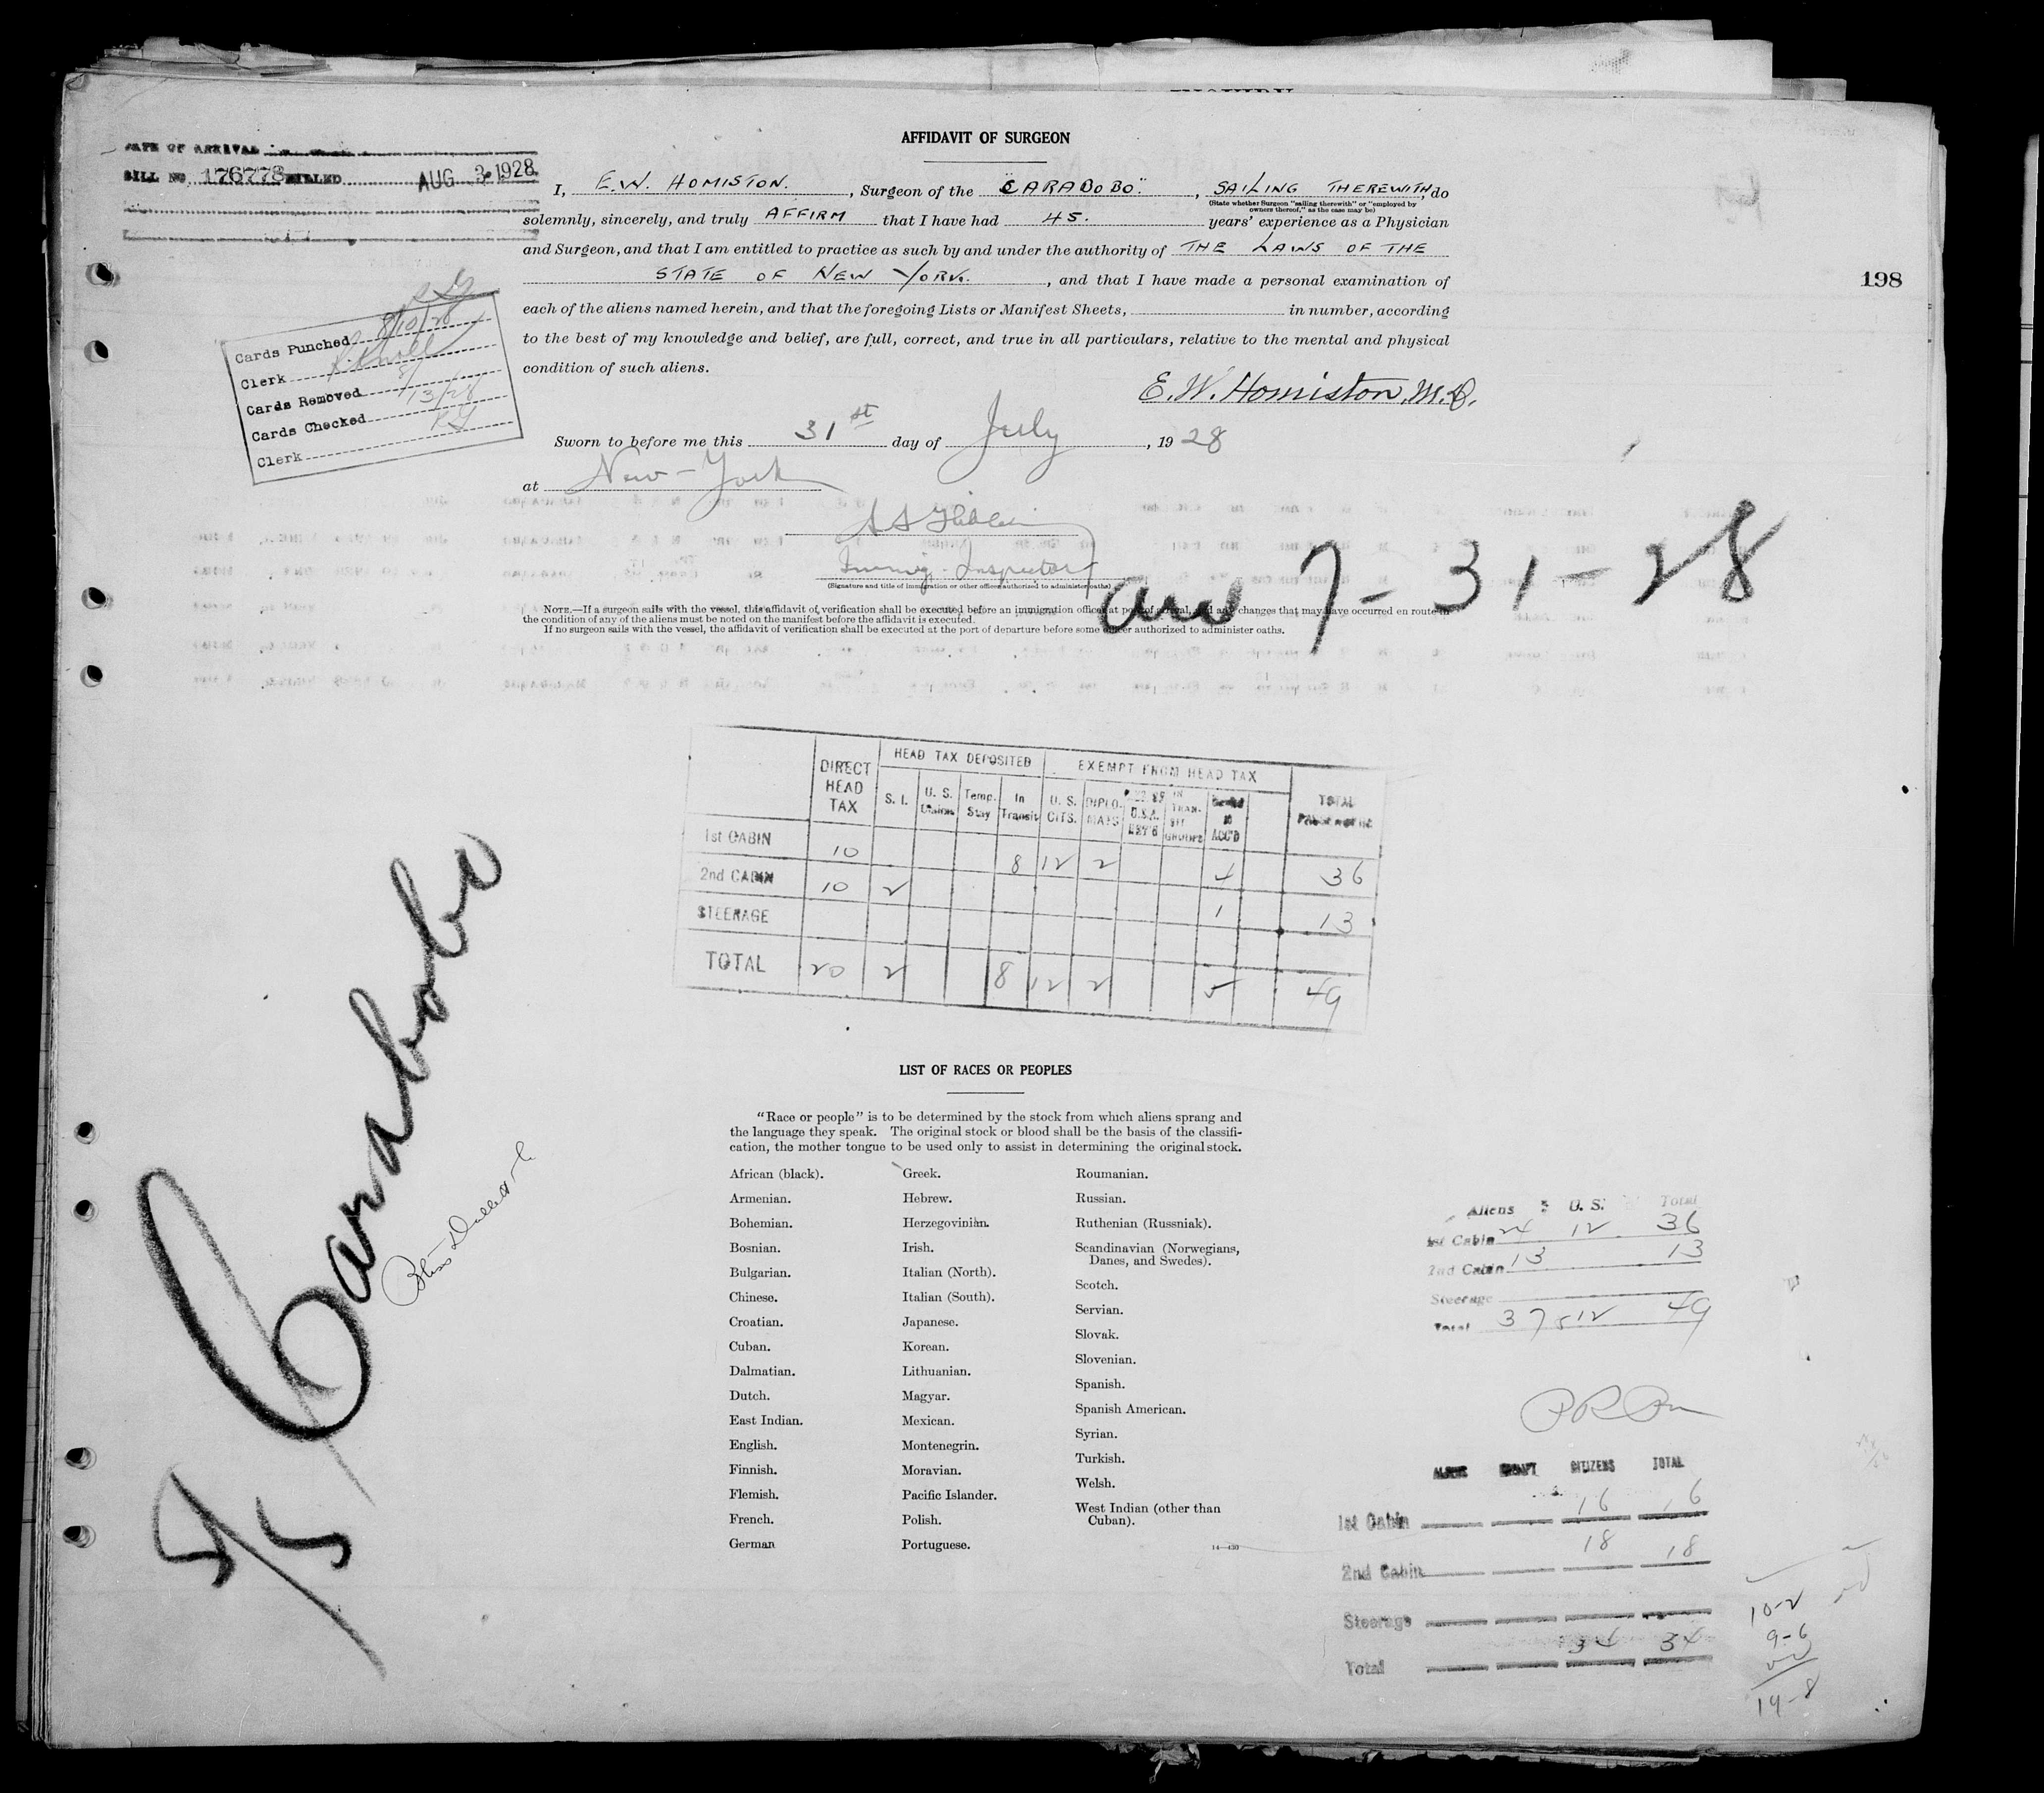 AFFIDAVIT OF SURGEON
DATE OF ARRIVAL
BILL NO. 176778 BILLED AUG 3 1928
I, E.W. HOMISTON. , Surgeon of the "CARABOBO". , SAILING THEREWITH, do
(State whether Surgeon "sailing therewith" or "employed by
owners thereof," as the case may be)
solemnly, sincerely, and truly AFFIRM that I have had 45. years' experience as a Physician
and Surgeon, and that I am entitled to practice as such by and under the authority of THE LAWS OF THE
STATE OF NEW YORK. , and that I have made a personal examination of
each of the aliens named herein, and that the foregoing Lists or Manifest Sheets, in number, according
to the best of my knowledge and belief, are full, correct, and true in all particulars, relative to the mental and physical
condition of such aliens.
198
E. W. Homiston, M.D.
Cards Punched 8/10/28
Clerk
Cards Removed 8/13/28
Cards Checked
Clerk
Sworn to before me this 31st day of July , 19 28
at New-York
Immig. Inspector
(Signature and title of immigration or other officer authorized to administer oaths)
arr 7-31-28
NOTE.—If a surgeon sails with the vessel, this affidavit of verification shall be executed before an immigration officer at port of arrival, and any changes that may have occurred en route in
the condition of any of the aliens must be noted on the manifest before the affidavit is executed.
If no surgeon sails with the vessel, the affidavit of verification shall be executed at the port of departure before some officer authorized to administer oaths.
DIRECT HEAD TAX
HEAD TAX DEPOSITED
EXEMPT FROM HEAD TAX
TOTAL
S. I. U. S. Claims Temp. Stay In Transit U. S. CITS. DIPLO-MATS U.S.A. IN TRAN-SIT GROUPS ACC'D
1st CABIN 10 8 12 2 4 36
2nd CABIN 10 2 1 13
STEERAGE
TOTAL 20 2 8 12 2 5 49
S/S Carabobo
LIST OF RACES OR PEOPLES
"Race or people" is to be determined by the stock from which aliens sprang and
the language they speak. The original stock or blood shall be the basis of the classifi-
cation, the mother tongue to be used only to assist in determining the original stock.
African (black).
Armenian.
Bohemian.
Bosnian.
Bulgarian.
Chinese.
Croatian.
Cuban.
Dalmatian.
Dutch.
East Indian.
English.
Finnish.
Flemish.
French.
German
Greek.
Hebrew.
Herzegovinian.
Irish.
Italian (North).
Italian (South).
Japanese.
Korean.
Lithuanian.
Magyar.
Mexican.
Montenegrin.
Moravian.
Pacific Islander.
Polish.
Portuguese.
Roumanian.
Russian.
Ruthenian (Russniak).
Scandinavian (Norwegians,
Danes, and Swedes).
Scotch.
Servian.
Slovak.
Slovenian.
Spanish.
Spanish American.
Syrian.
Turkish.
Welsh.
West Indian (other than
Cuban).
14—430
Aliens U. S. Total
1st Cabin 24 12 36
2nd Cabin 13 13
Steerage
Total 37 12 49
ALIENS CITIZENS TOTAL
1st Cabin 16 16
2nd Cabin 18 18
Steerage
Total 34 34
10-2
9-6
19-8